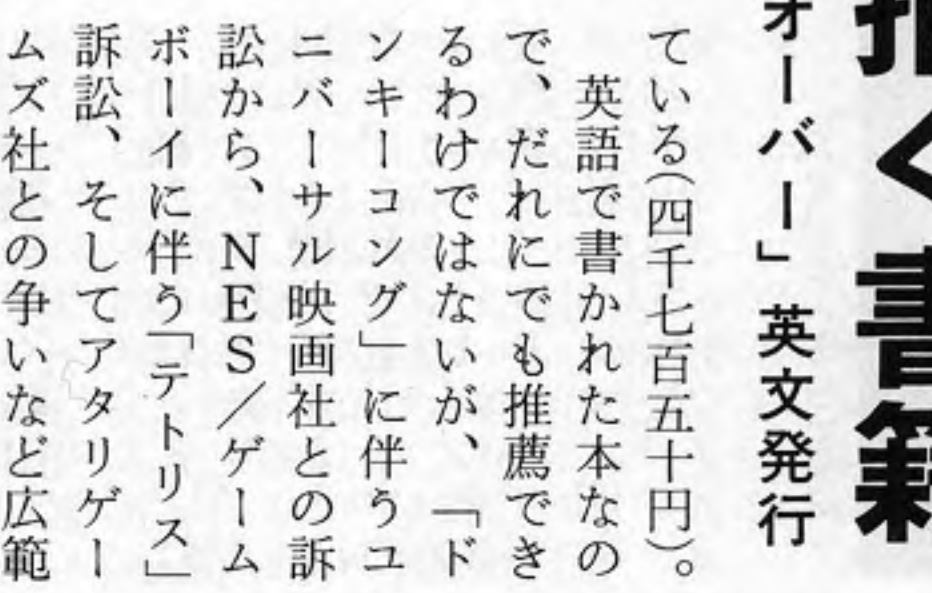 描く書籍
オーバー」英文発行
ている(四千七百五十円)。
英語で書かれた本なの
で、だれにでも推薦でき
るわけではないが、「ド
ンキーコング」に伴うユ
ニバーサル映画社との訴
訟から、NES/ゲーム
ボーイに伴う「テトリス」
訴訟、そしてアタリゲー
ムズ社との争いなど広範